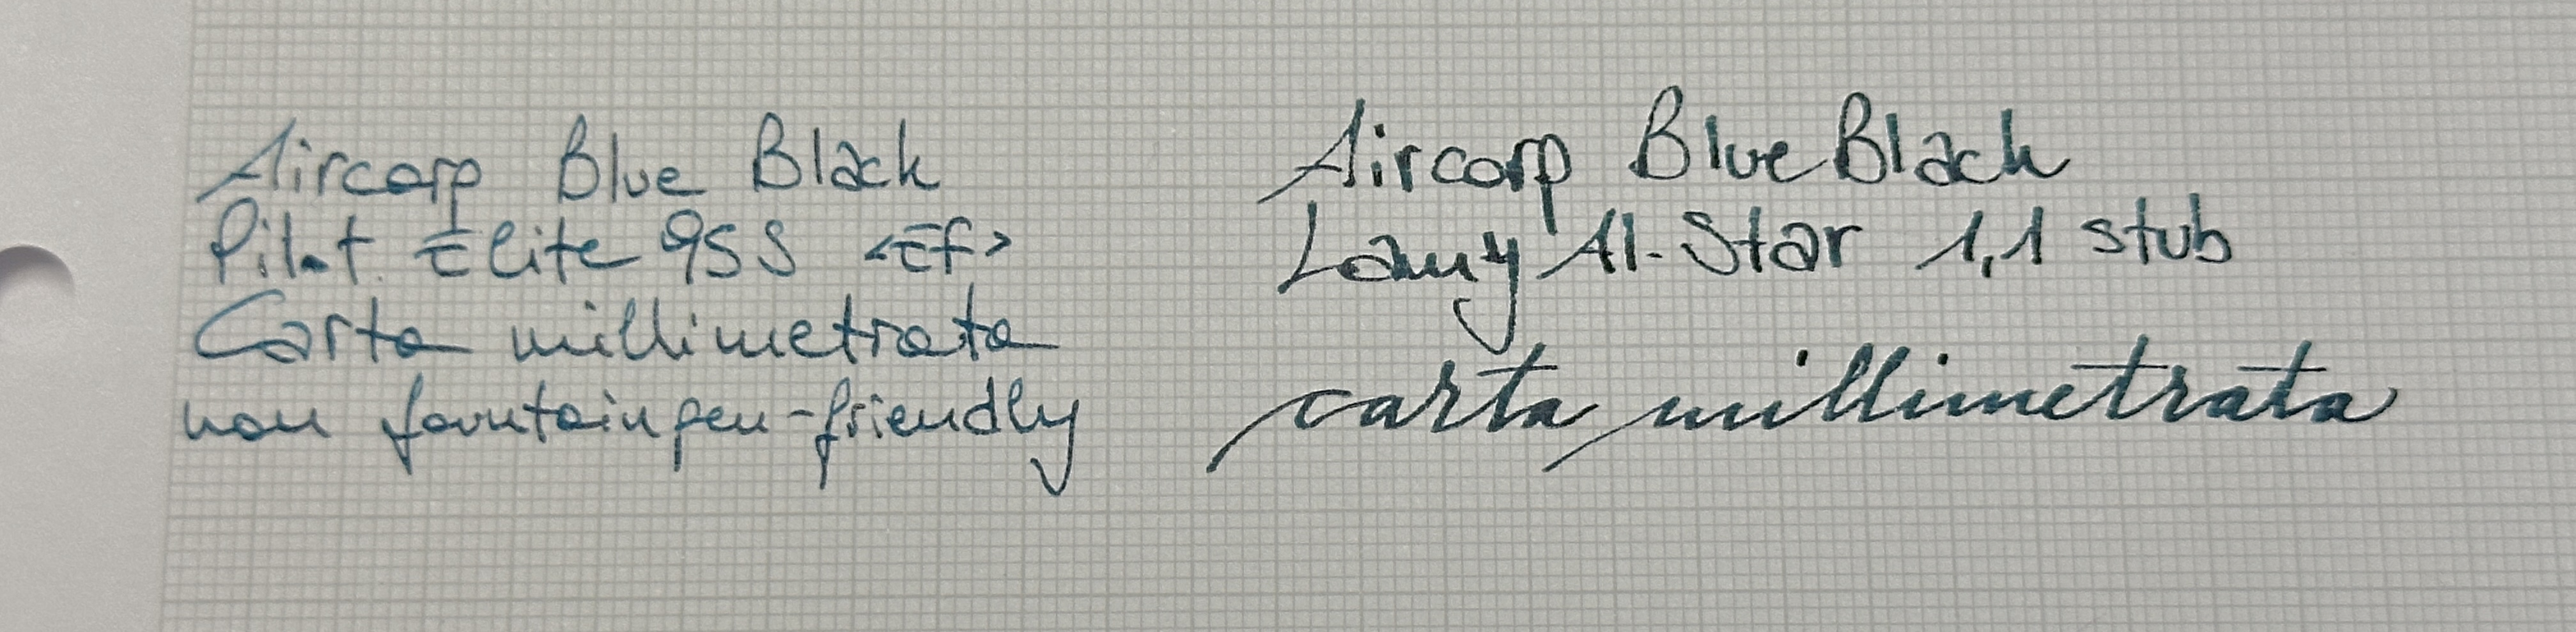 Aircorp Blue Black
Pilot Elite 95S <EF>
Carta millimetrata
non fountain pen-friendly
Aircorp Blue Black
Lamy Al-Star 1,1 stub
carta millimetrata